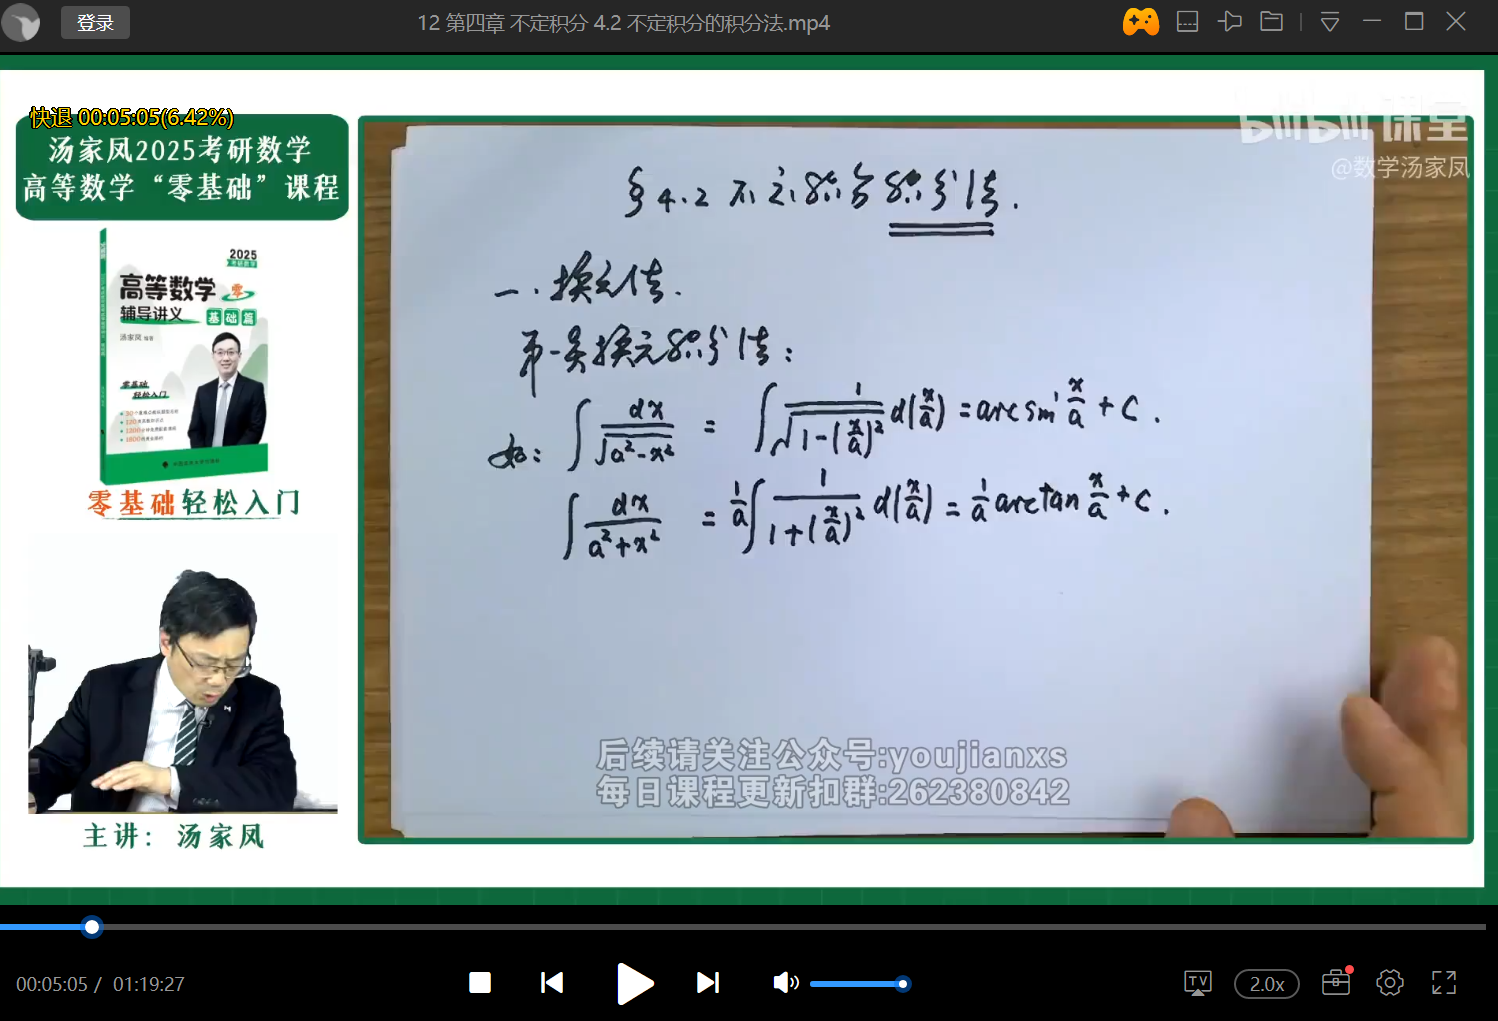 登录
12 第四章 不定积分 4.2 不定积分的积分法.mp4
快退 00:05:05(6.42%)
汤家凤2025考研数学
高等数学“零基础”课程
2025
高等数学 零
辅导讲义 基础篇
汤家凤 编著
零基础
轻松入门
零基础轻松入门
主讲：汤家凤
bilibili 课堂
@数学汤家凤
§4.2 不定积分积分法.
一.换元法.
第一类换元积分法:
如: ∫ dx/√(a²-x²) = ∫ 1/√(1-(x/a)²) d(x/a) = arcsin x/a + C.
∫ dx/(a²+x²) = 1/a ∫ 1/(1+(x/a)²) d(x/a) = 1/a arctan x/a + C.
后续请关注公众号:youjianxs
每日课程更新扣群:262380842
00:05:05 / 01:19:27
TV
2.0x